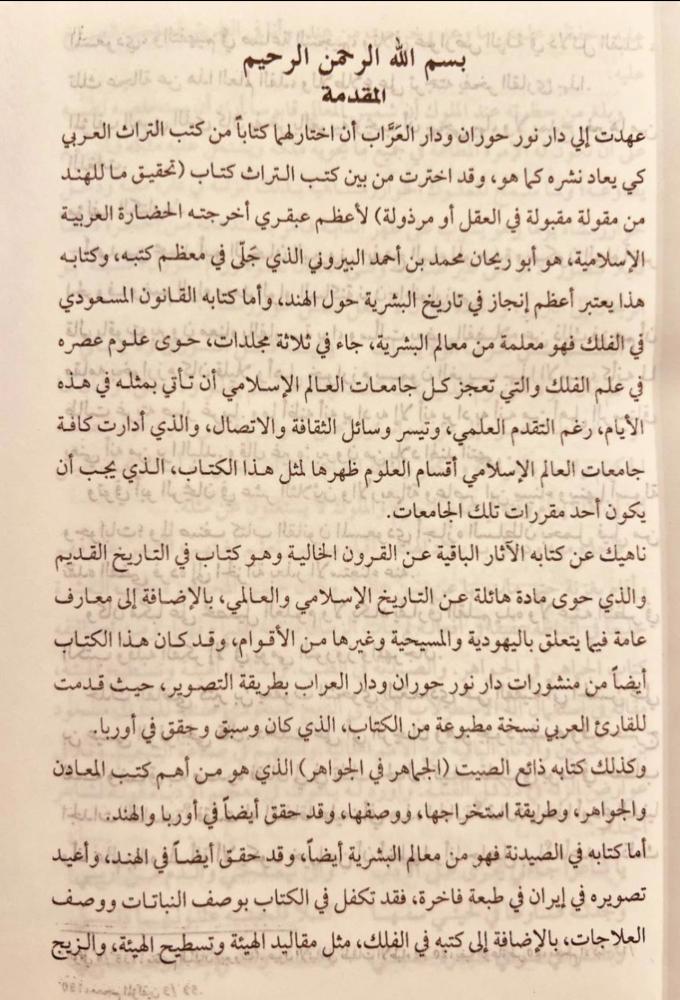 بسم الله الرحمن الرحيم
المقدمة
عهدت إلي دار نور حوران ودار العَرَّاب أن اختار لهما كتاباً من كتب التراث العربي
كي يعاد نشره كما هو، وقد اخترت من بين كتب التراث كتاب (تحقيق ما للهند
من مقولة مقبولة في العقل أو مرذولة) لأعظم عبقري أخرجته الحضارة العربية
الإسلامية، هو أبو ريحان محمد بن أحمد البيروني الذي جَلّى في معظم كتبه، وكتابه
هذا يعتبر أعظم إنجاز في تاريخ البشرية حول الهند، وأما كتابه القانون المسعودي
في الفلك فهو معلمة من معالم البشرية، جاء في ثلاثة مجلدات، حوى علوم عصره
في علم الفلك والتي تعجز كل جامعات العالم الإسلامي أن تأتي بمثله في هذه
الأيام، رغم التقدم العلمي، وتيسر وسائل الثقافة والاتصال، والذي أدارت كافة
جامعات العالم الإسلامي أقسام العلوم ظهرها لمثل هذا الكتاب، الذي يجب أن
يكون أحد مقررات تلك الجامعات.
ناهيك عن كتابه الآثار الباقية عن القرون الخالية وهو كتاب في التاريخ القديم
والذي حوى مادة هائلة عن التاريخ الإسلامي والعالمي، بالإضافة إلى معارف
عامة فيما يتعلق باليهودية والمسيحية وغيرها من الأقوام، وقد كان هذا الكتاب
أيضاً من منشورات دار نور حوران ودار العراب بطريقة التصوير، حيث قدمت
للقارئ العربي نسخة مطبوعة من الكتاب، الذي كان وسبق وحقق في أوربا.
وكذلك كتابه ذائع الصيت (الجماهر في الجواهر) الذي هو من أهم كتب المعادن
والجواهر، وطريقة استخراجها، ووصفها، وقد حقق أيضاً في أوربا والهند.
أما كتابه في الصيدنة فهو من معالم البشرية أيضاً، وقد حقق أيضاً في الهند، وأعيد
تصويره في إيران في طبعة فاخرة، فقد تكفل في الكتاب بوصف النباتات ووصف
العلاجات، بالإضافة إلى كتبه في الفلك، مثل مقاليد الهيئة وتسطيح الهيئة، والزيج